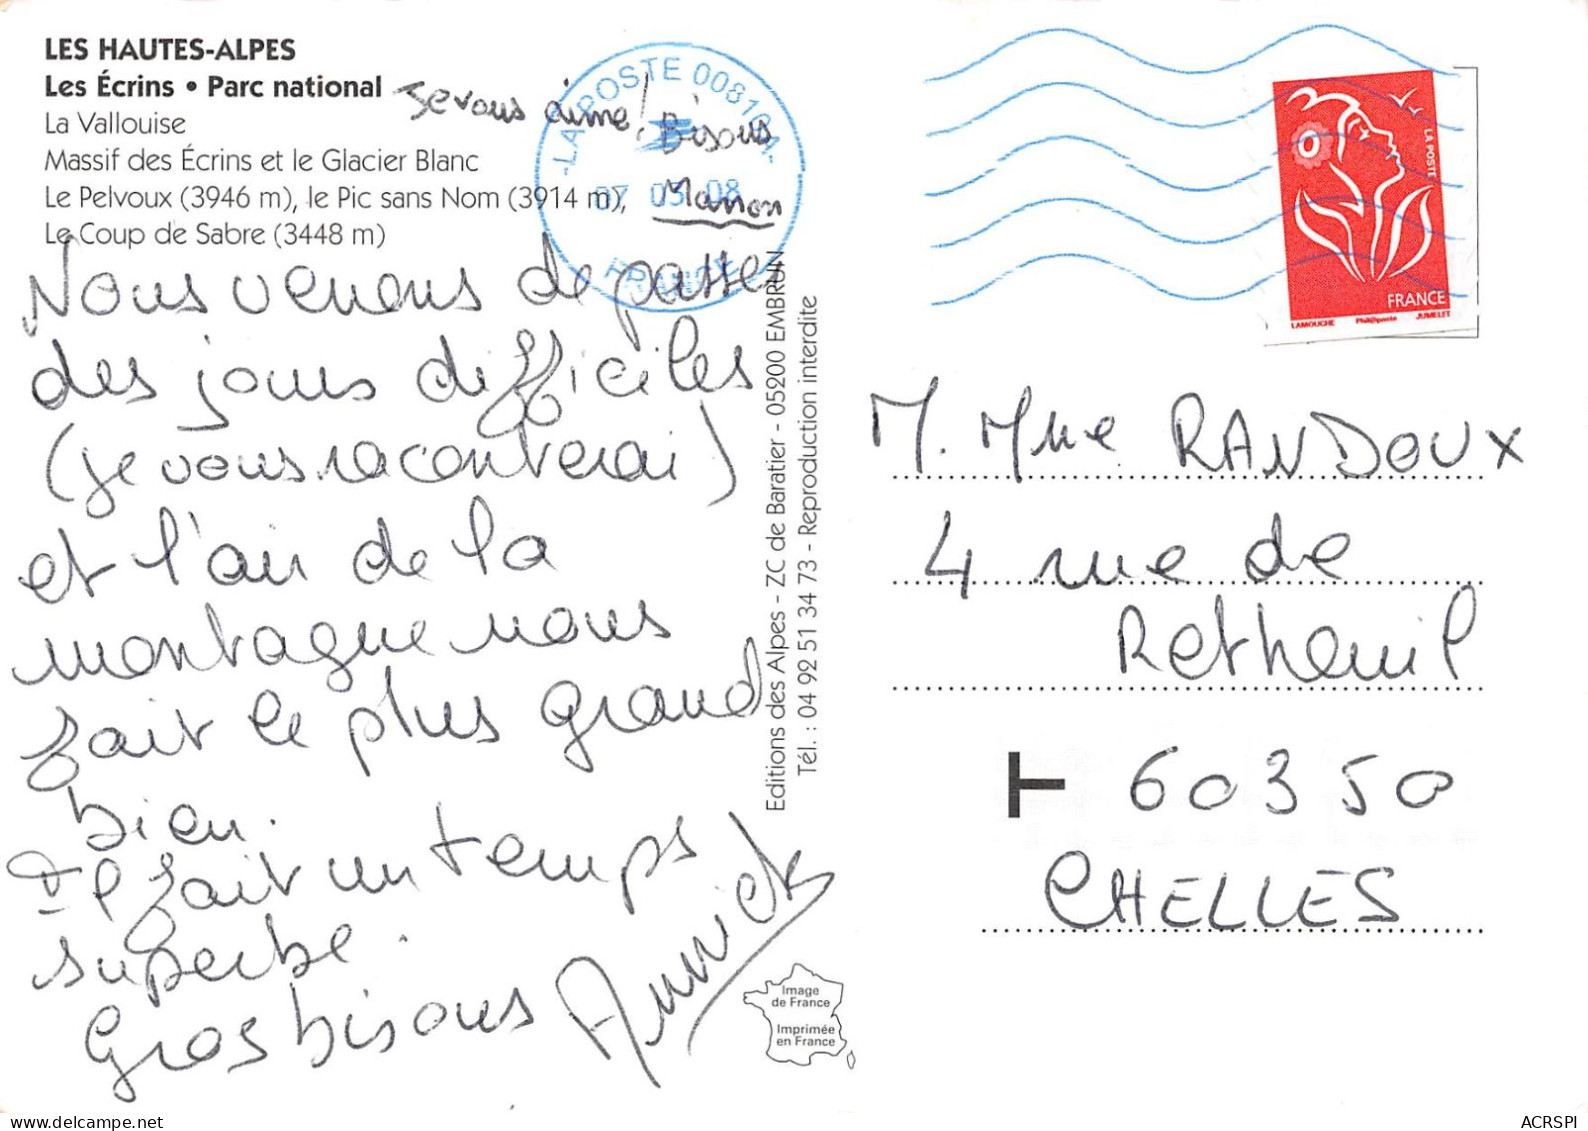 LES HAUTES-ALPES
Les Écrins • Parc national
La Vallouise
Massif des Écrins et le Glacier Blanc
Le Pelvoux (3946 m), le Pic sans Nom (3914 m),
Le Coup de Sabre (3448 m)
Je vous aime! Bisous
Manon
Nous venons de passer
des jours difficiles
(je vous raconterai)
et l'air de la
montagne nous
fait le plus grand
bien.
Il fait un temps
superbe.
Gros bisous
Annick
LA POSTE 00810A
07 03 08
FRANCE
Editions des Alpes - ZC de Baratier - 05200 EMBRUN
Tél. : 04 92 51 34 73 - Reproduction interdite
Image
de France
Imprimée
en France
LA POSTE
FRANCE
LAMOUCHE Phil@poste JUMELET
M. Mme RANDOUX
4 rue de
Retheuil
T 60350
CHELLES
ACRSPI